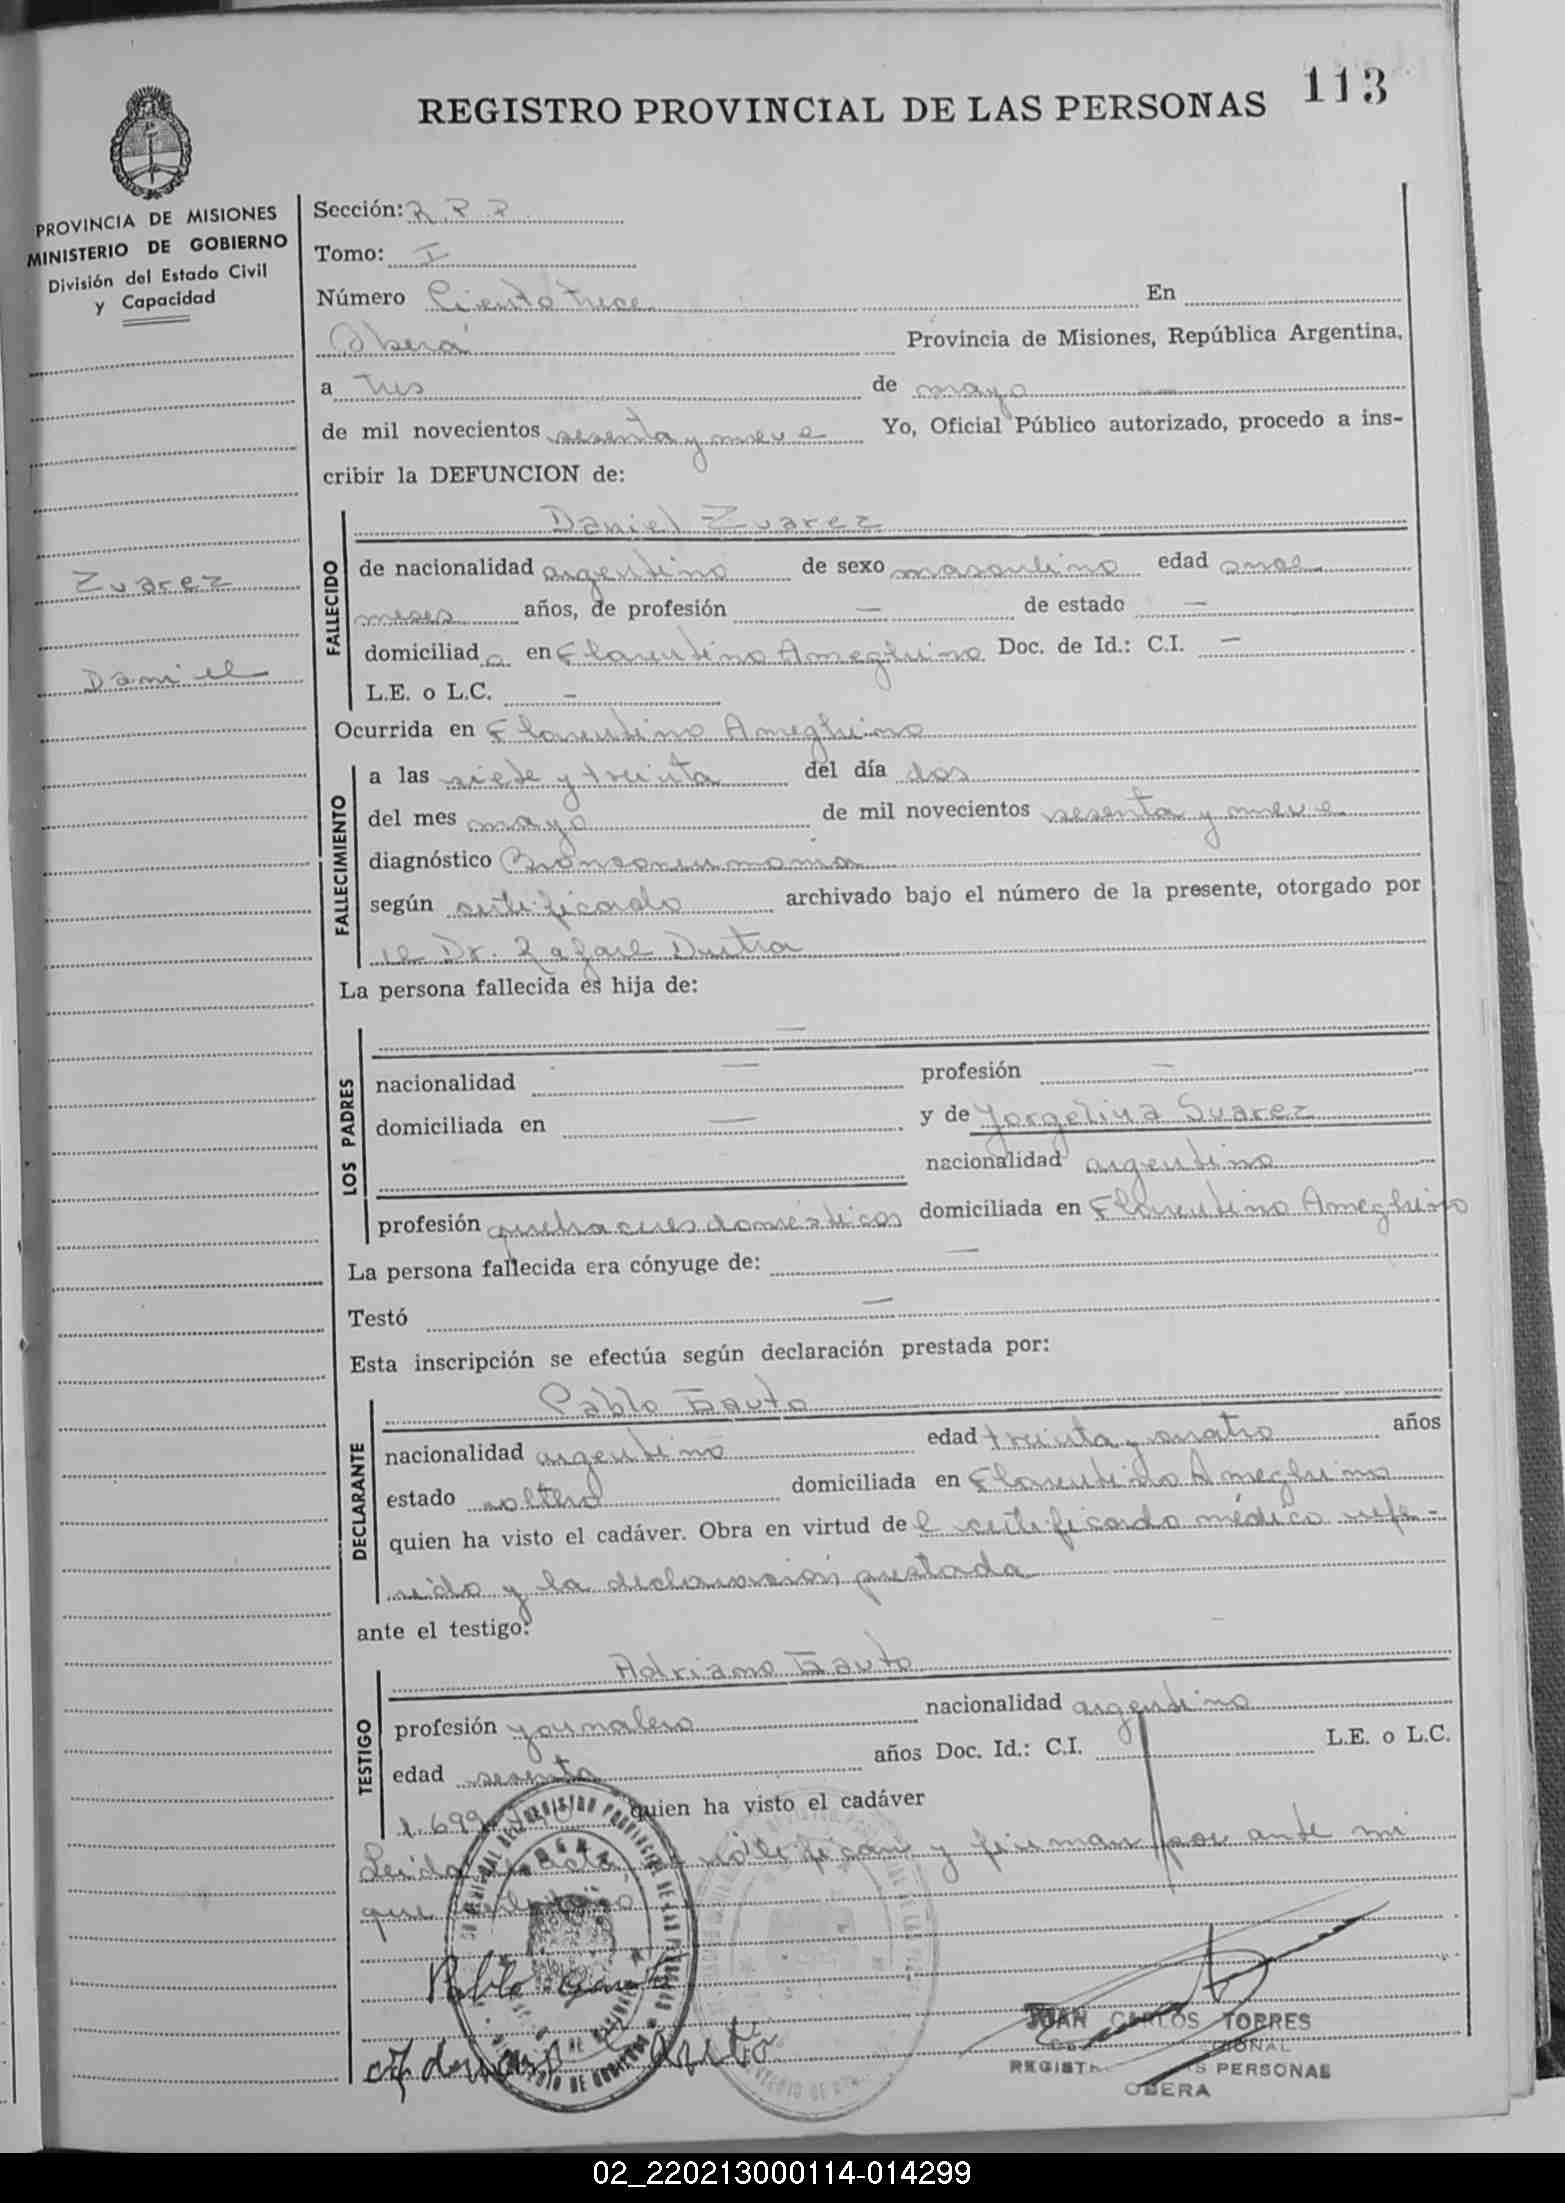 113
REGISTRO PROVINCIAL DE LAS PERSONAS
PROVINCIA DE MISIONES
MINISTERIO DE GOBIERNO
División del Estado Civil
y Capacidad
Zuarez
Daniel
Sección: R P P
Tomo: I
Número Ciento trece En
Oberá Provincia de Misiones, República Argentina,
a tres de mayo
de mil novecientos sesenta y nueve Yo, Oficial Público autorizado, procedo a ins-
cribir la DEFUNCION de:
FALLECIDO
Daniel Zuarez
de nacionalidad argentino de sexo masculino edad once
meses años, de profesión — de estado —
domiciliado en Florentino Ameghino Doc. de Id.: C.I. —
L.E. o L.C. —
Ocurrida en Florentino Ameghino
FALLECIMIENTO
a las siete y treinta del día dos
del mes mayo de mil novecientos sesenta y nueve
diagnóstico Bronconeumonia
según certificado archivado bajo el número de la presente, otorgado por
el Dr. Rafael Dutra
La persona fallecida es hija de:
LOS PADRES
—
nacionalidad — profesión —
domiciliada en — y de Yorgelina Suarez
nacionalidad argentino
profesión quehaceres domésticos domiciliada en Florentino Ameghino
La persona fallecida era cónyuge de: —
Testó —
Esta inscripción se efectúa según declaración prestada por:
DECLARANTE
Pablo Gauto
nacionalidad argentino edad treinta y cuatro años
estado soltero domiciliada en Florentino Ameghino
quien ha visto el cadáver. Obra en virtud del certificado médico refe-
rido y la declaración prestada
ante el testigo:
TESTIGO
Adriano Gauto
profesión yornalero nacionalidad argentino
edad sesenta años Doc. Id.: C.I. L.E. o L.C.
1.699. quien ha visto el cadáver
Leida acta, ratifican y firman por ante mi
que
Pablo Gauto
JUAN CARLOS TORRES
REGISTR S PERSONAS
OBERA
02_220213000114-014299